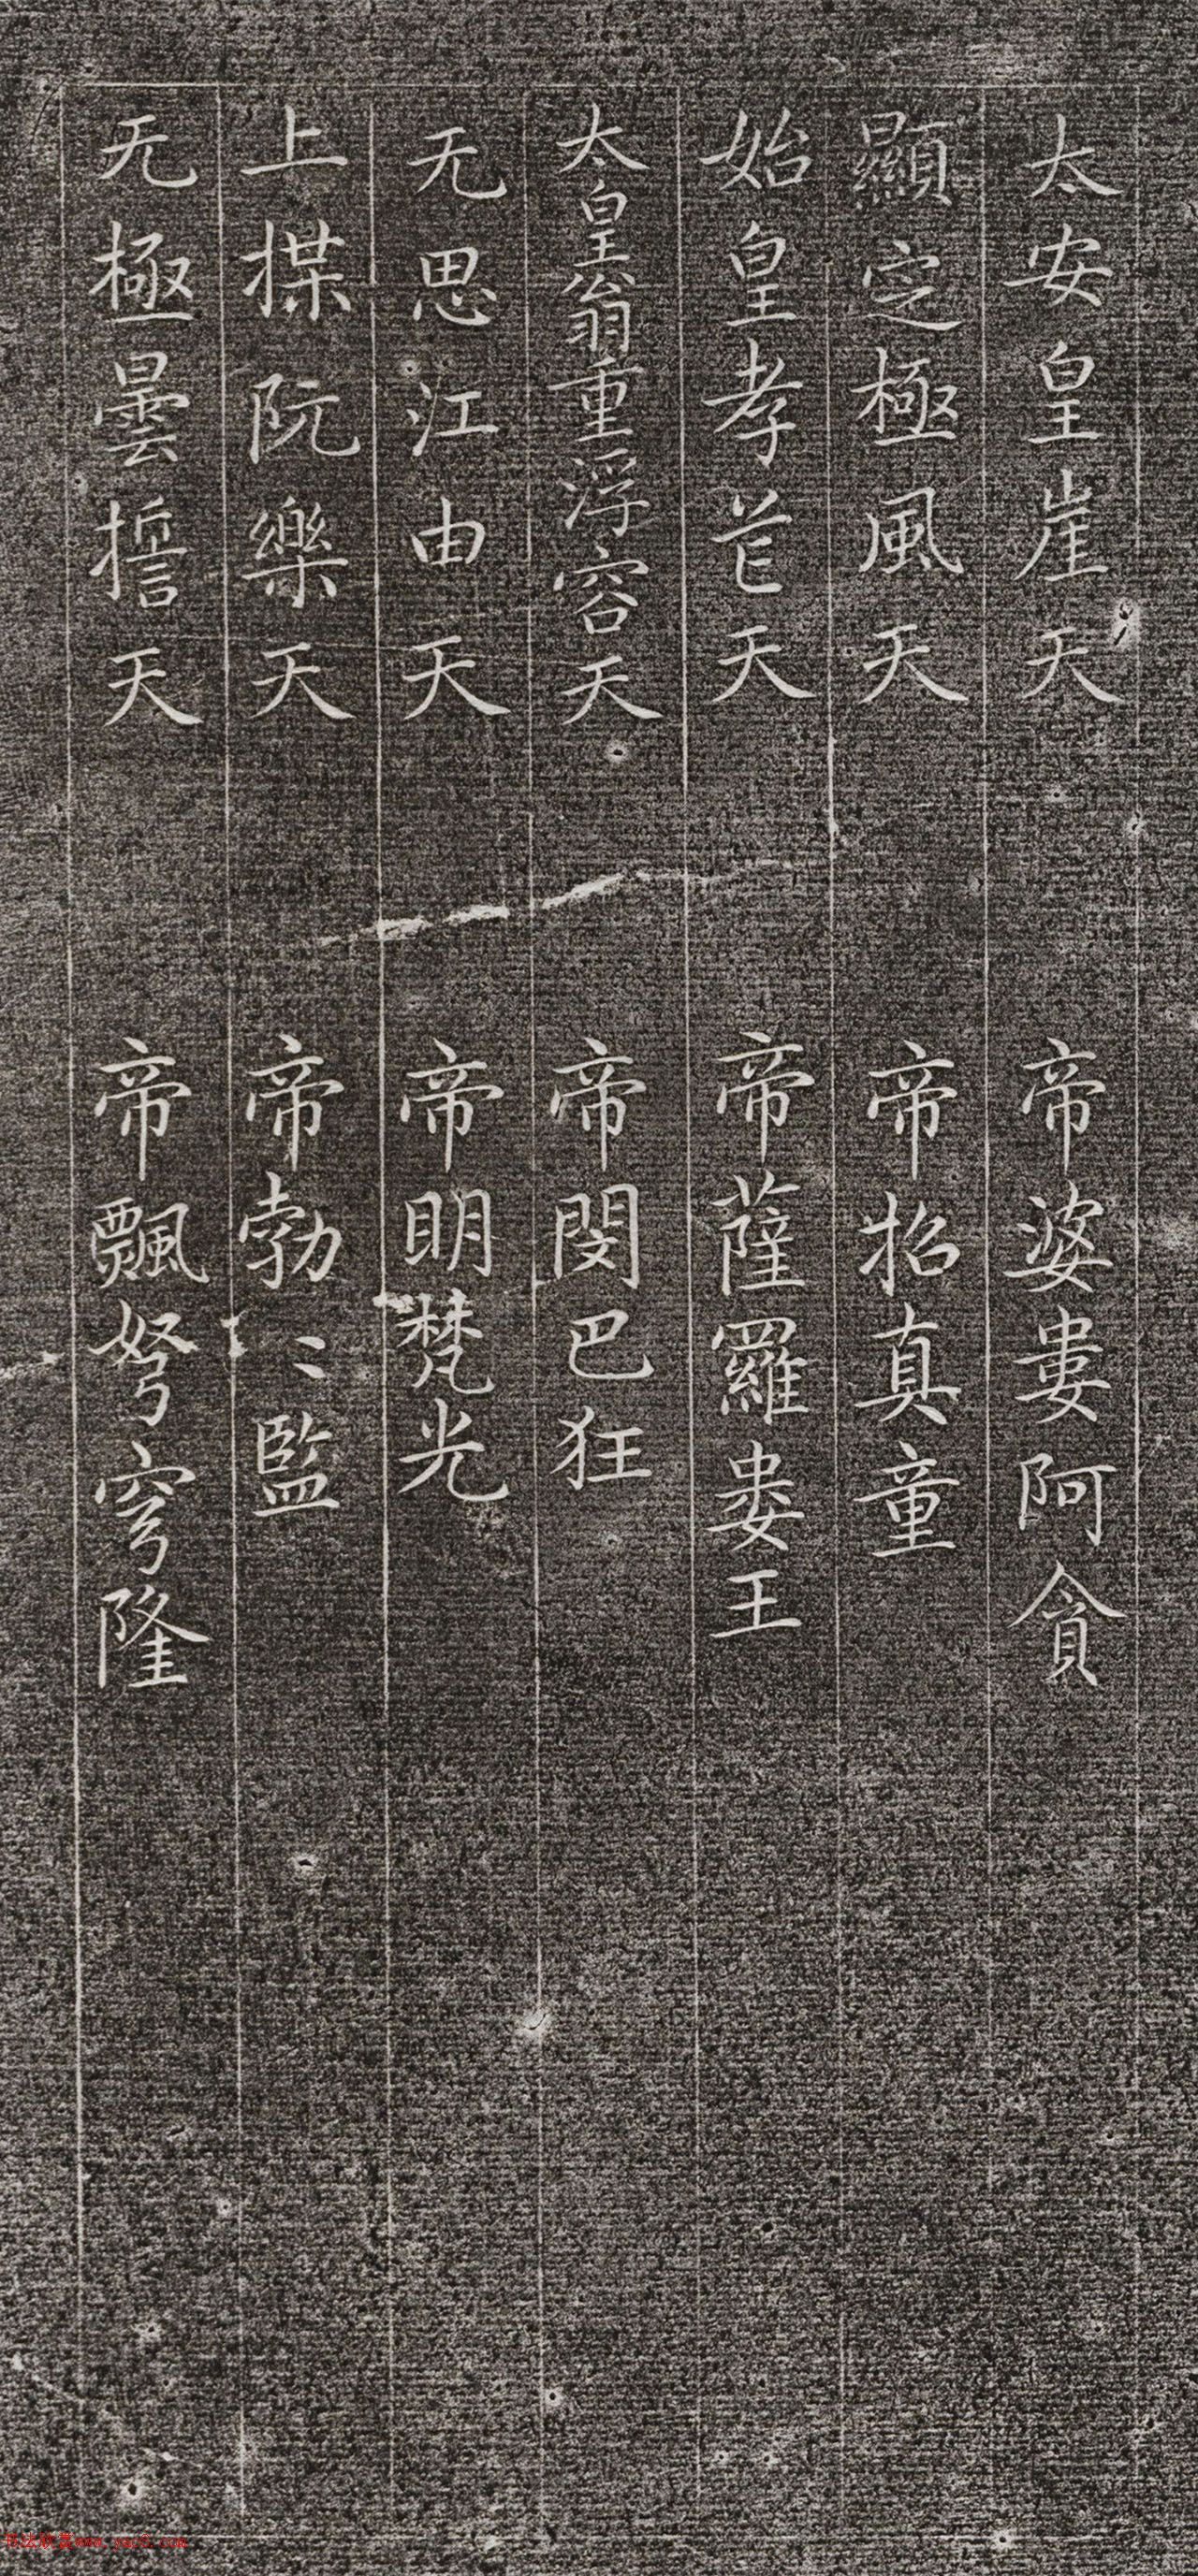 太安皇崖天 帝婆婁阿貪
顯定極風天 帝招真童
始皇孝芒天 帝薩羅婁王
太皇翁重浮容天 帝閔巴狂
无思江由天 帝明梵光
上揲阮樂天 帝勃〻監
无極曇誓天 帝飄弩穹隆